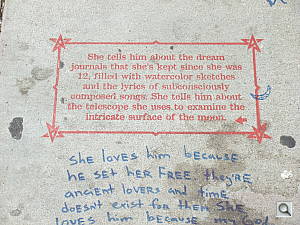 She tells him about the dream
journals that she's kept since she was
12, filled with watercolor sketches
and the lyrics of subconsciously
composed songs. She tells him about
the telescope she uses to examine the
intricate surface of the moon.
she loves him because
he set her FREE. they're
ancient lovers and time
doesn't exist for them she
loves him because my God